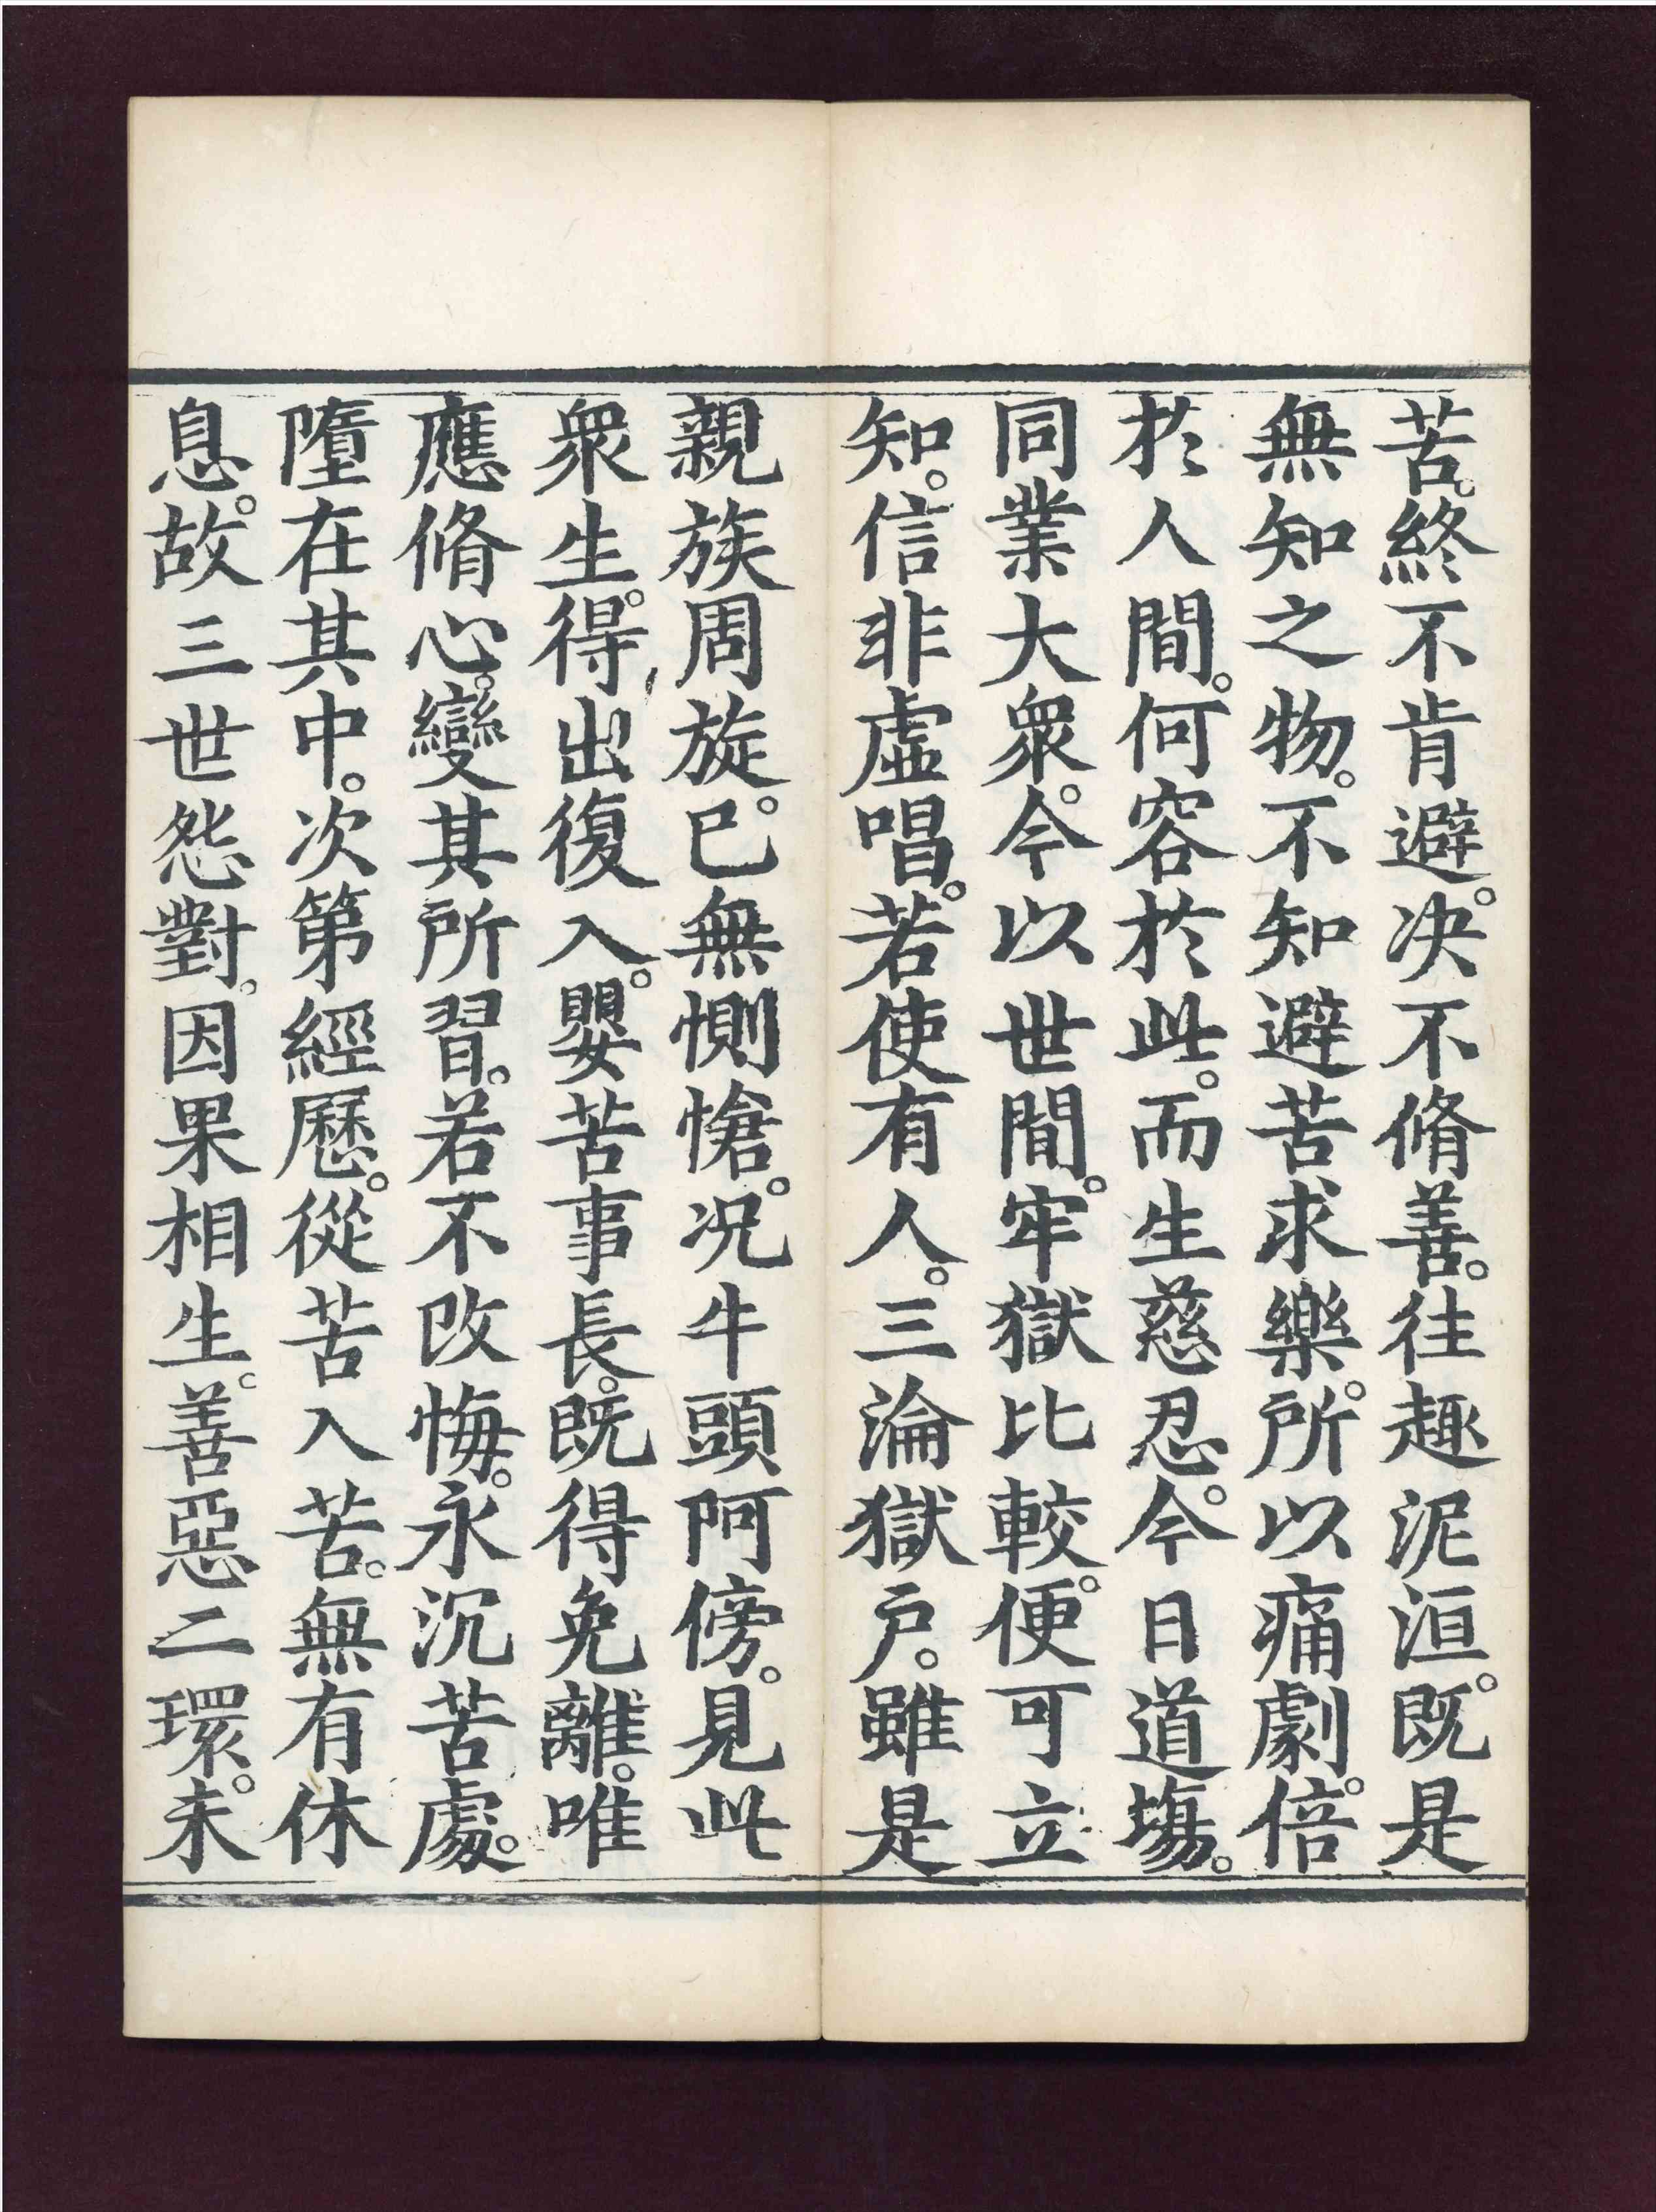 苦。終不肯避。决不脩善。往趣泥洹。既是
無知之物。不知避苦求樂。所以痛劇。倍
於人間。何容於此。而生慈忍。今日道塲。
同業大衆。今以世間。牢獄比較。便可立
知。信非虛唱。若使有人。三淪獄戶。雖是
親族周旋。已無惻愴。况牛頭阿傍。見此
衆生。得出復入。嬰苦事長。既得免離。唯
應脩心。變其所習。若不改悔。永沉苦處。
墮在其中。次第經歷。從苦入苦。無有休
息。故三世怨對。因果相生。善惡二環。未